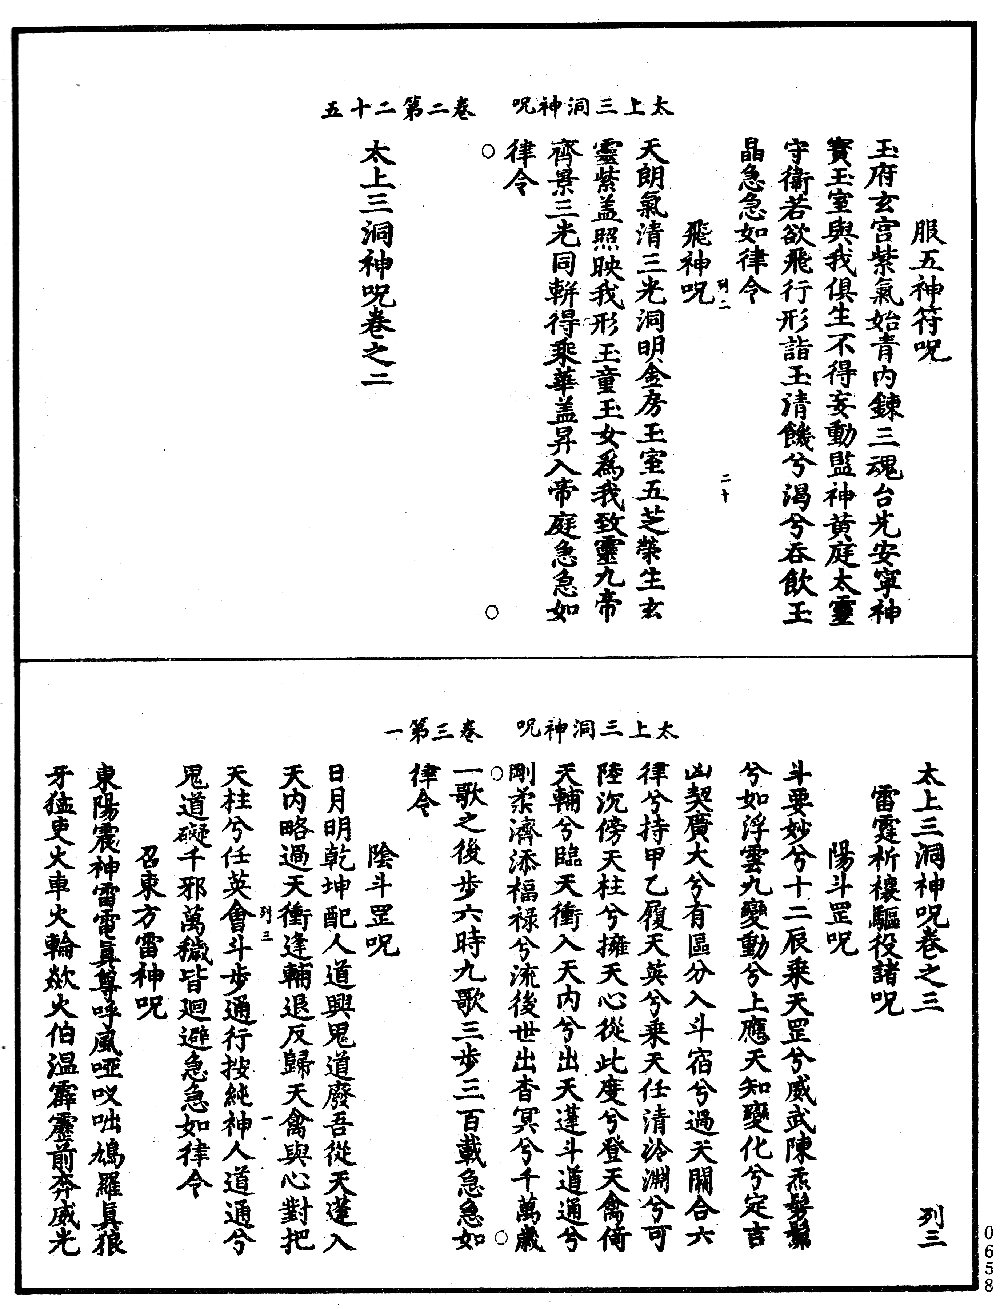 太上三洞神呪　卷二第二十五
服五神符呪
玉府玄宫紫氣始青內鍊三魂台光安寧神
寳玉室與我俱生不得妄動監神黄庭太靈
守衛若欲飛行形詣玉清饑兮渴兮吞飲玉
晶急急如律令
列二
二十
飛神呪
天朗氣清三光洞明金房玉室五芝榮生玄
靈紫盖照映我形玉童玉女爲我致靈九帝
齊景三光同軿得乘華盖昇入帝庭急急如
律令
太上三洞神呪卷之二
太上三洞神呪　卷三第一
太上三洞神呪卷之三　列三
雷霆祈禳驅役諸呪
陽斗罡呪
斗要妙兮十二辰乘天罡兮威武陳炁髣髴
兮如浮雲九變動兮上應天知變化兮定吉
凶契廣大兮有區分入斗宿兮過天關合六
律兮持甲乙履天英兮乘天任清泠淵兮可
陸沉傍天柱兮擁天心從此度兮登天禽倚
天輔兮臨天衝入天內兮出天蓬斗道通兮
剛柔濟添福禄兮流後世出杳冥兮千萬歲
一歌之後步六時九歌三步三百載急急如
律令
陰斗罡呪
日月明乾坤配人道興鬼道廢吾從天蓬入
天内略過天衝逢輔退反歸天禽與心對把
列三
一
天柱兮任英會斗步通行按純神人道通兮
鬼道礙千邪萬穢皆迴避急急如律令
召東方雷神呪
東陽震神雷電真尊呼風啞㕥咄鳩羅真狼
牙猛吏火車火輪歘火伯溫霹靂前奔威光
0658